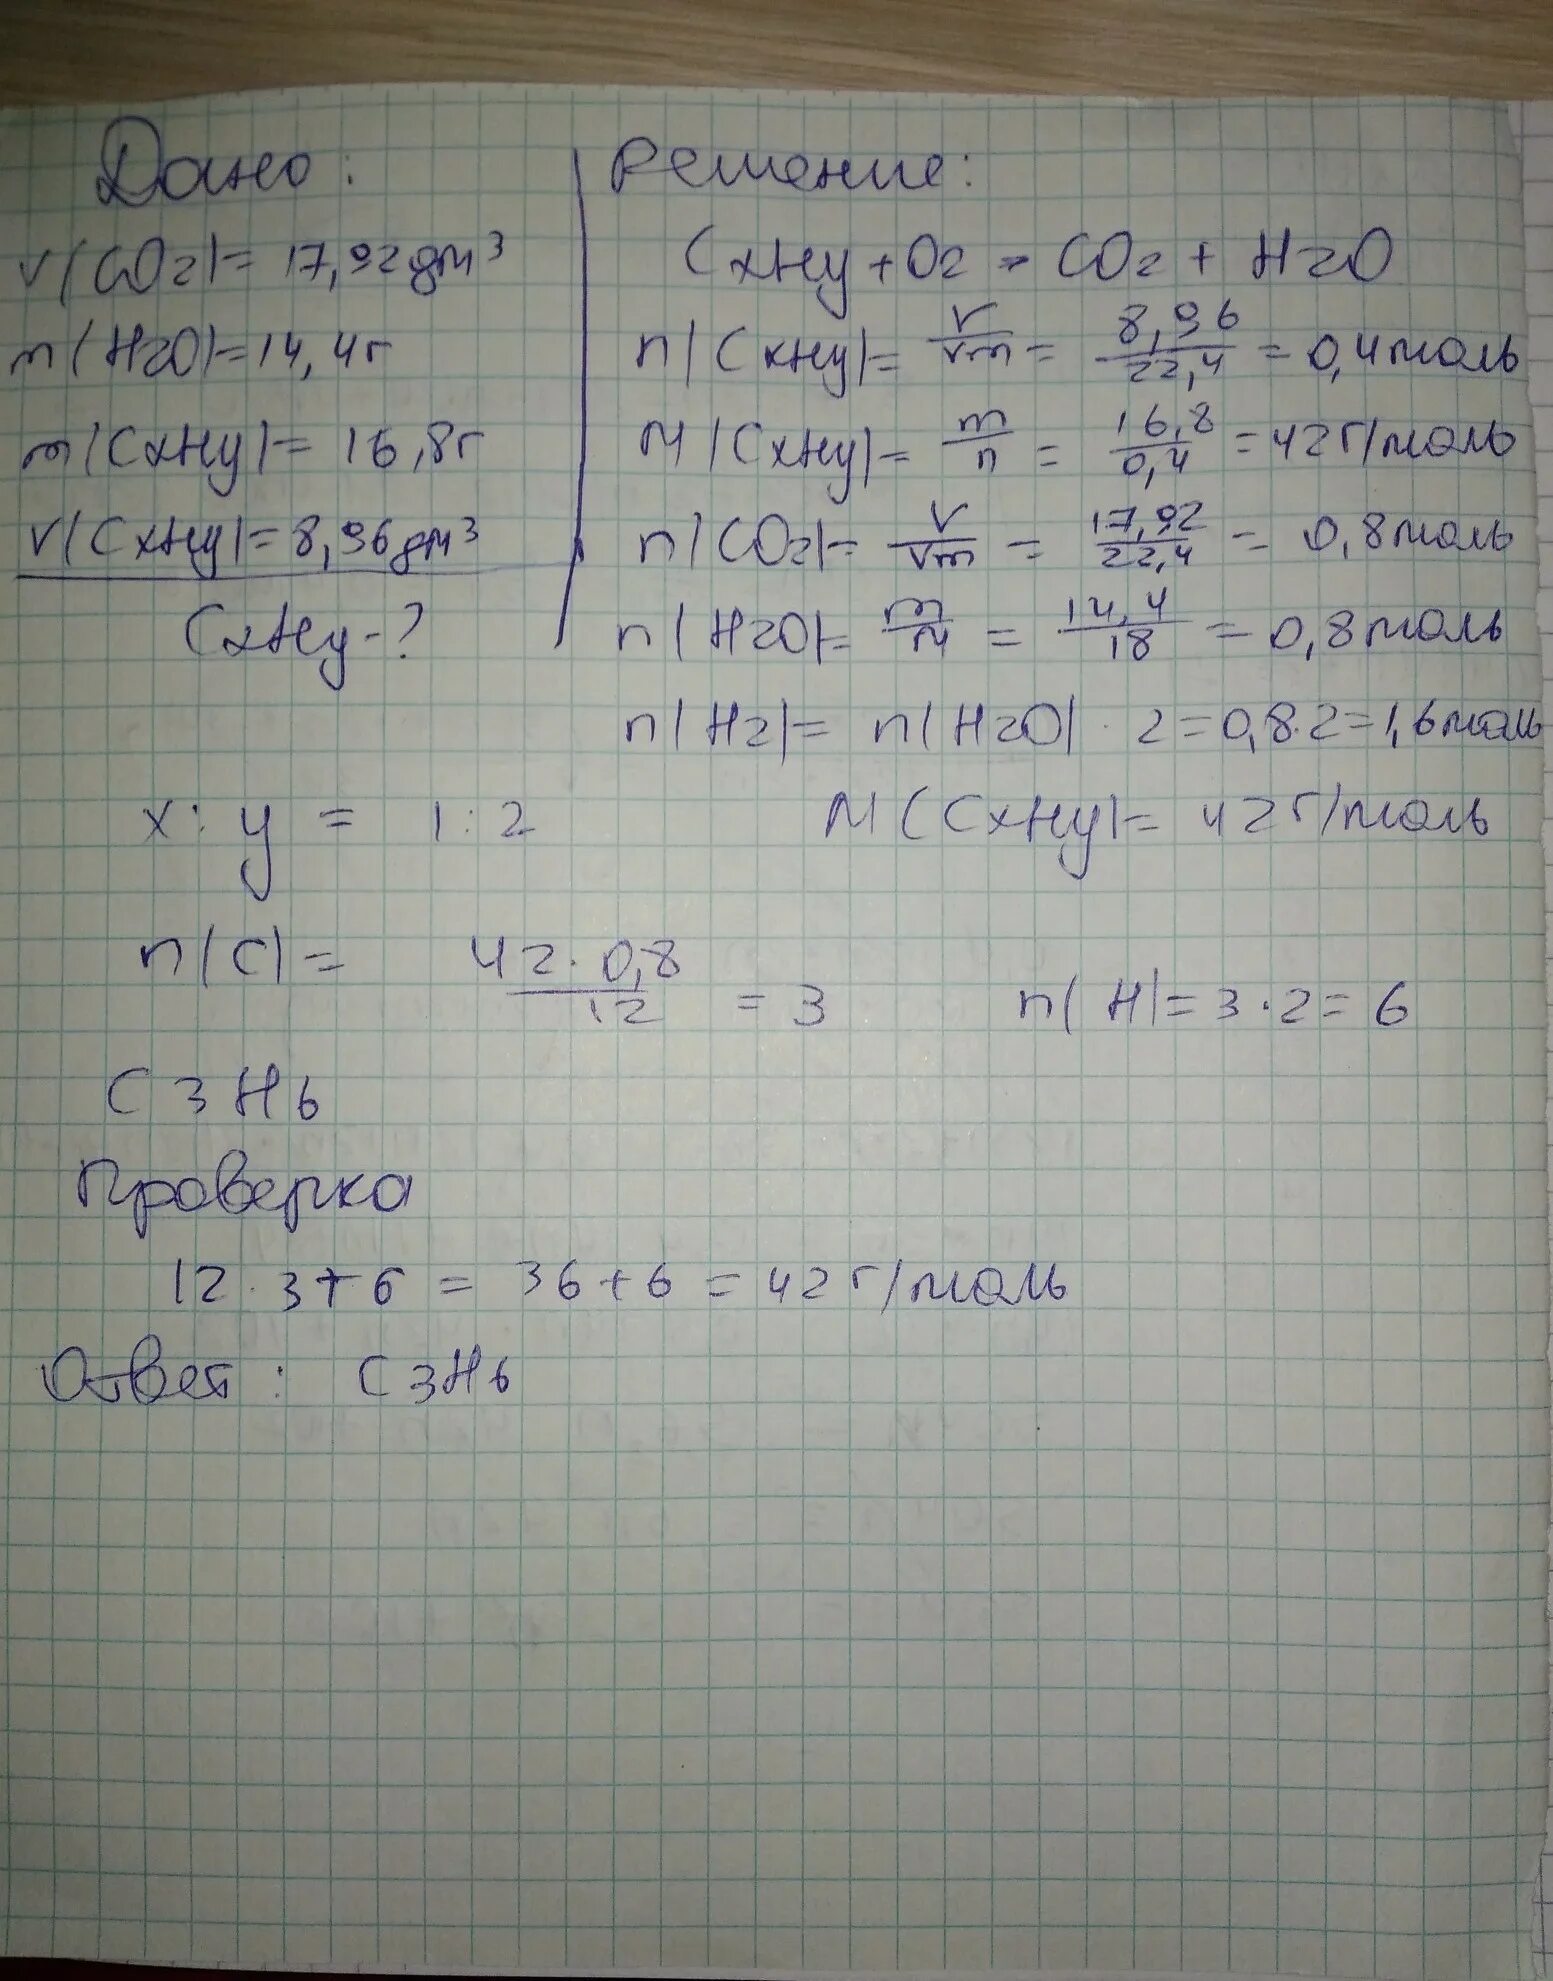 Дано:
V(CO2)=17,92дм³
m(H2O)=14,4г
m(CxHy)=16,8г
V(CxHy)=8,96дм³
CxHy-?
Решение:
CxHy+O2 → CO2 + H2O
n(CxHy)= V/Vm = 8,96/22,4 = 0,4моль
M(CxHy)= m/n = 16,8/0,4 =42г/моль
n(CO2)= V/Vm = 17,92/22,4 = 0,8моль
n(H2O)= m/M = 14,4/18 = 0,8моль
n(H2)= n(H2O)·2=0,8·2=1,6моль
x:y = 1:2 M(CxHy)= 42г/моль
n(C)= 42·0,8/12 = 3 n(H)=3·2=6
C3H6
Проверка
12·3+6 = 36+6 = 42г/моль
Ответ: C3H6